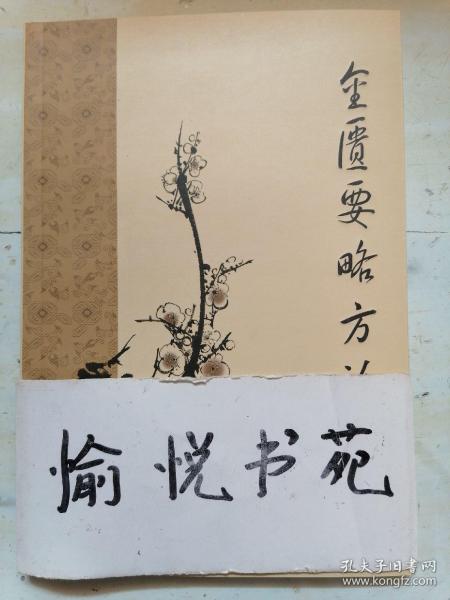 金匱要略方
愉悦书苑
孔夫子旧书网
www.kongfz.com